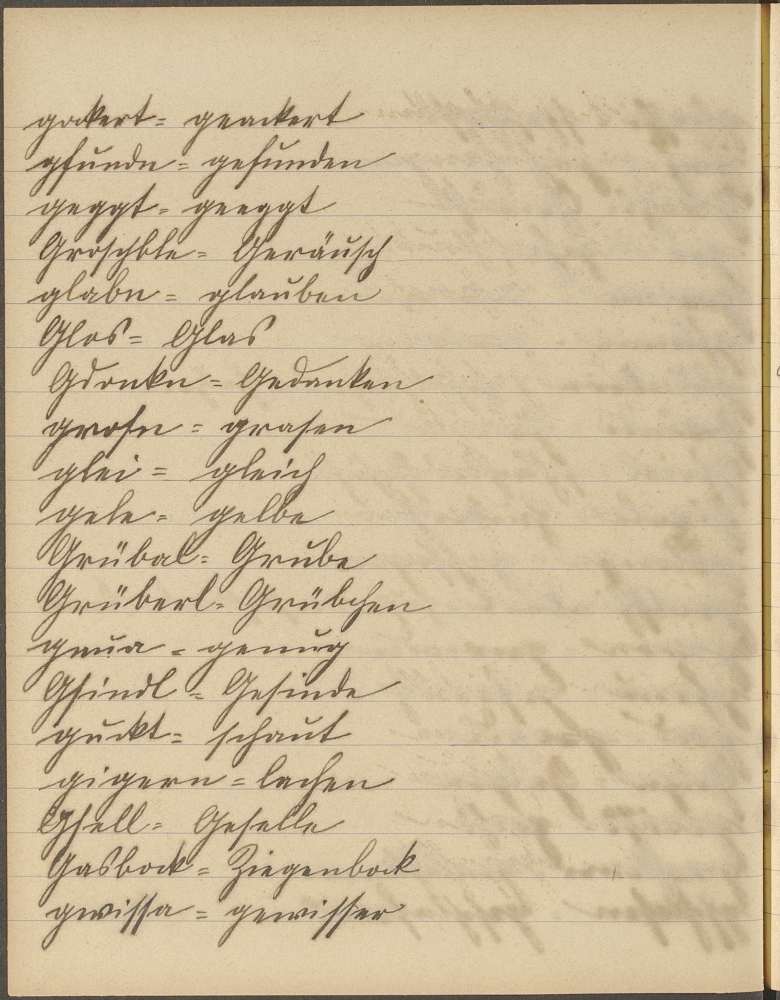 gackert = geackert
gfundn = gefunden
geggt = geeggt
Groschble = Geräusch
glabn = glauben
Glos = Glas
Gdonkn = Gedanken
grosn = grasen
glei = gleich
gele = gelbe
Grübal = Grube
Grüberl = Grübchen
gnua = genug
Gsindl = Gesinde
guckt = schaut
gigern = lachen
Gsell = Geselle
Gasbock = Ziegenbock
gwissa = gewisser